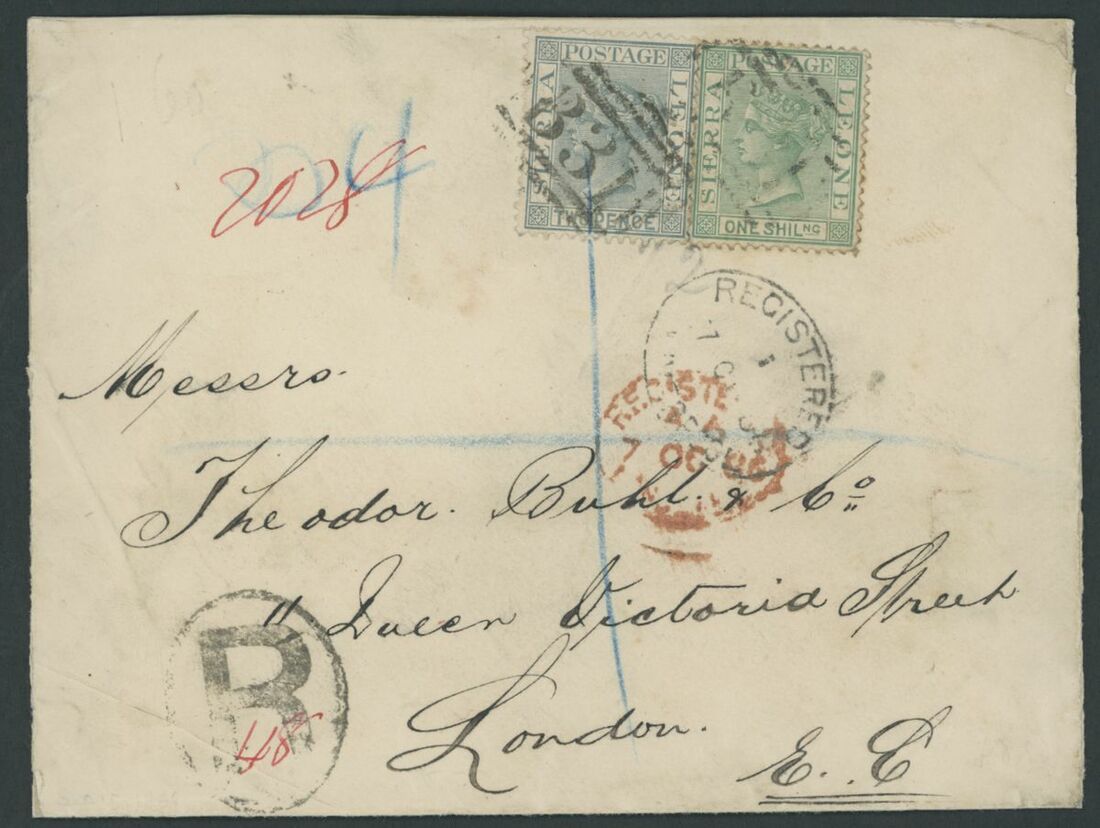 POSTAGE
SIERRA
LEONE
TWO PENCE
B31
POSTAGE
SIERRA
LEONE
ONE SHILNG
2028
4
REGISTERED
REGISTE
7 OC 86
Messrs.
Theodor. Buhl. & Co
11 Queen Victoria Street
London.
E. C
R
48